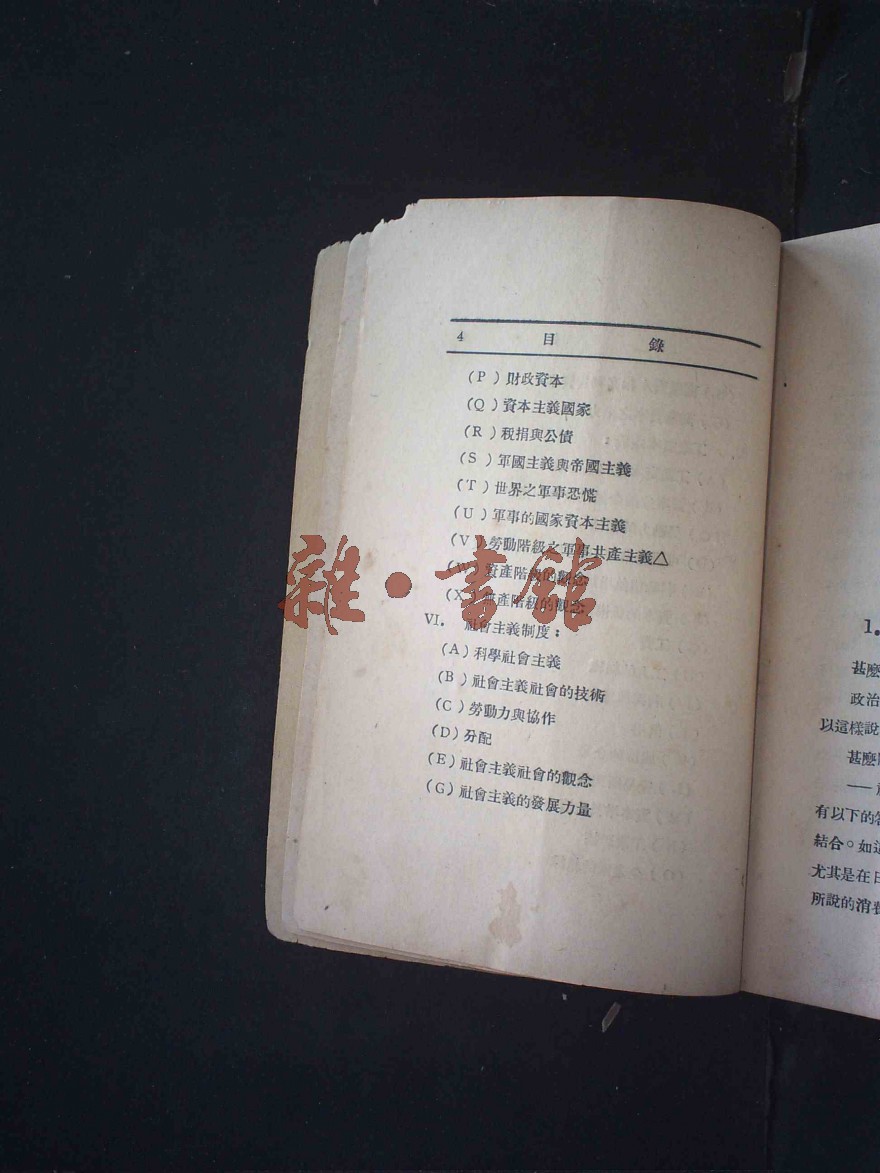 4 目 錄
(P)財政資本
(Q)資本主義國家
(R)稅捐與公債
(S)軍國主義與帝國主義
(T)世界之軍事恐慌
(U)軍事的國家資本主義
(V)勞動階級之軍事共產主義△
(W)資產階級的觀念
(X)無產階級的觀念
VI. 社會主義制度：
(A)科學社會主義
(B)社會主義社會的技術
(C)勞動力與協作
(D)分配
(E)社會主義社會的觀念
(G)社會主義的發展力量
雜·書館
1.
甚麼
政治
以這樣說
甚麼
有以下的答
結合。如這
尤其是在日
所說的消費